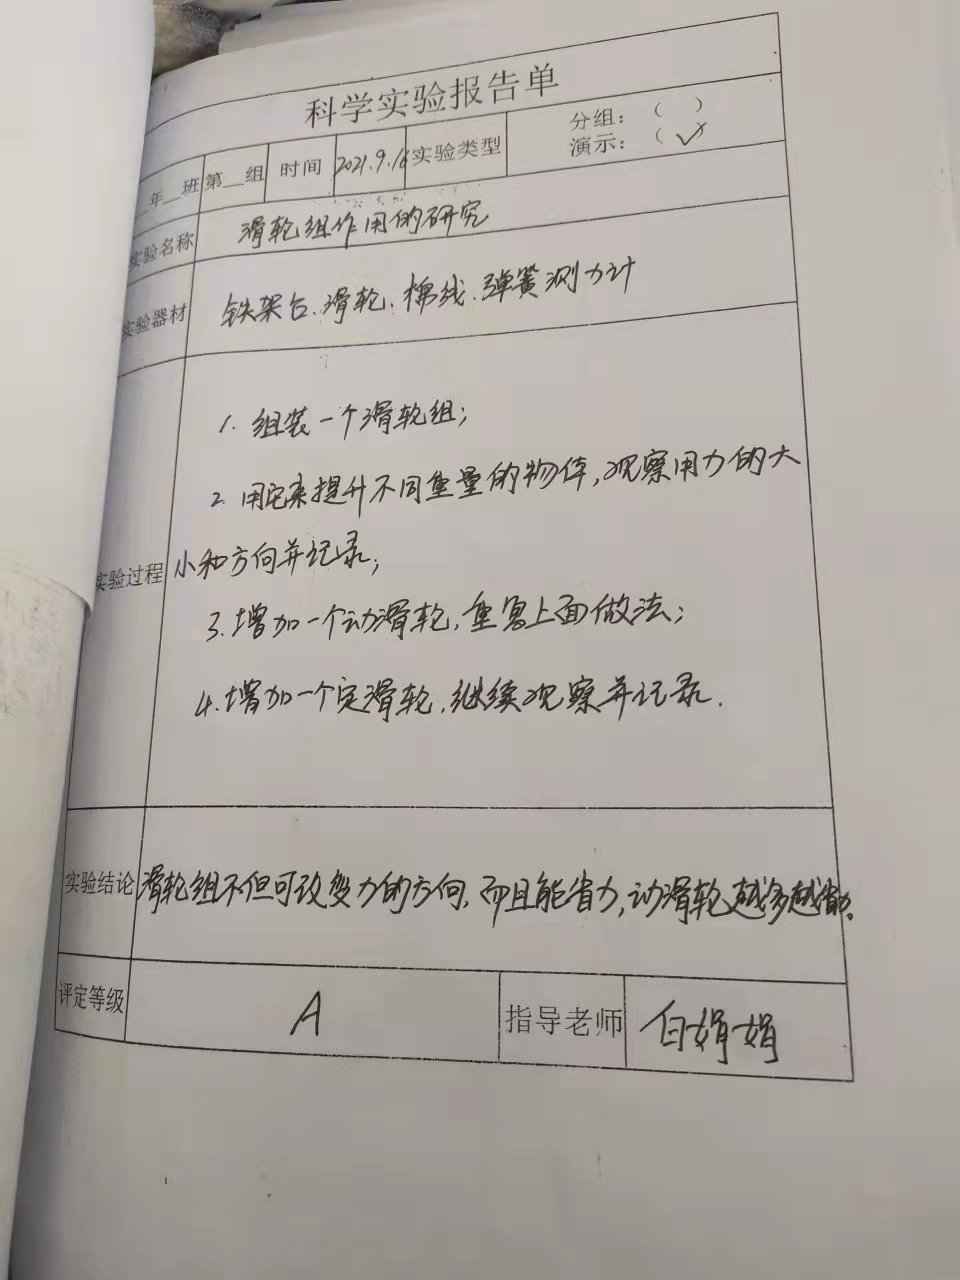 科学实验报告单
__年__班 第__组 时间 2021.9.16 实验类型 分组：（ ）
演示：（✓）
实验名称 滑轮组作用的研究
实验器材 铁架台、滑轮、棉线、弹簧测力计
实验过程
1. 组装一个滑轮组；
2. 用它来提升不同重量的物体，观察用力的大
小和方向并记录；
3. 增加一个动滑轮，重复上面做法；
4. 增加一个定滑轮，继续观察并记录.
实验结论 滑轮组不但可改变力的方向，而且能省力，动滑轮越多越省力。
评定等级 A 指导老师 白娟娟